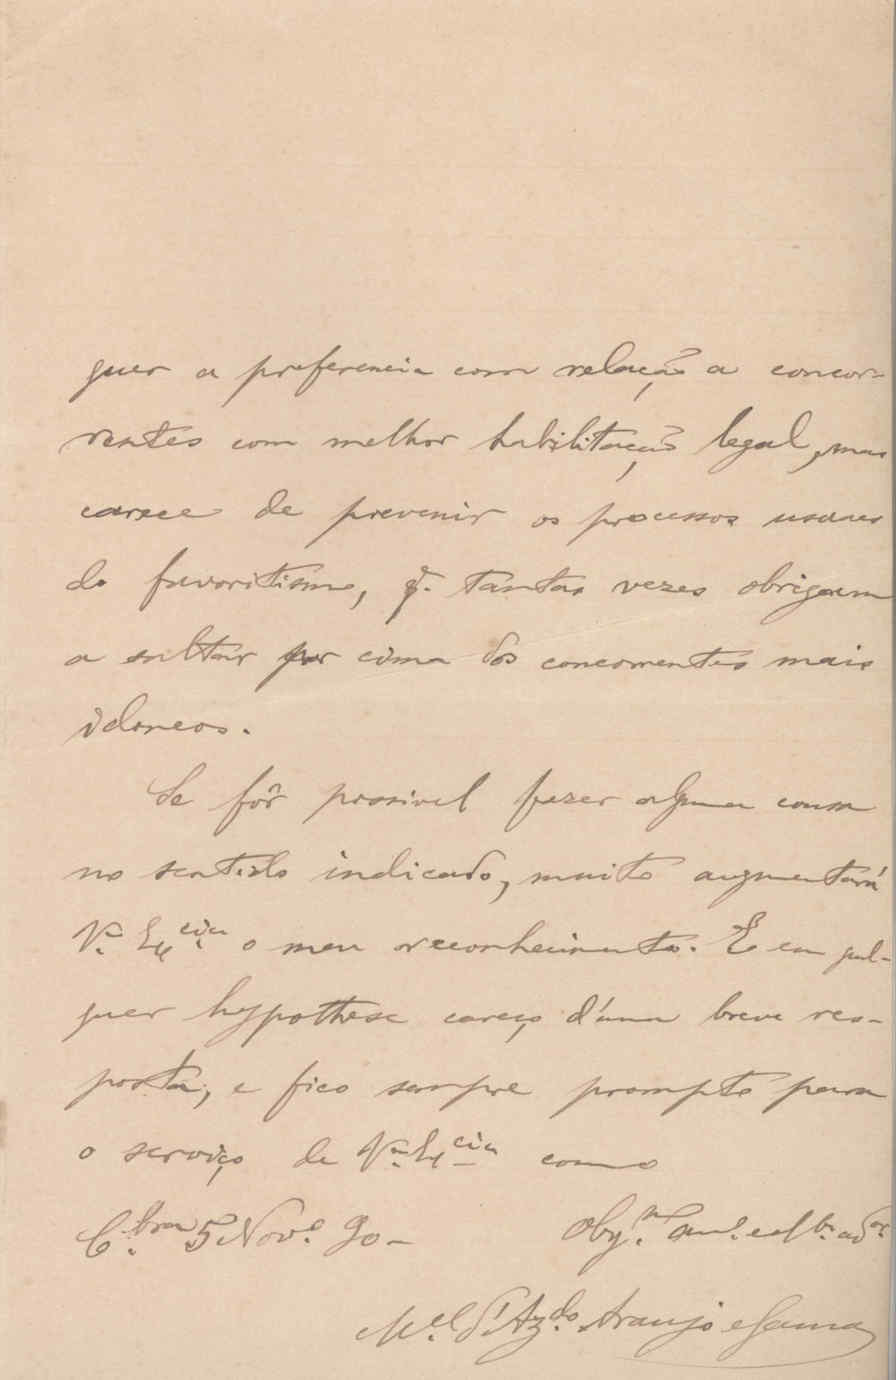 quer a preferencia com relação a concor-
rentes com melhor habilitação legal, mas
carece de prevenir os processos usuaes
do favoritismo, q. tantas vezes obrigam
a saltar por cima dos concorrentes mais
idoneos.
Se fôr possivel fazer alguma cousa
no sentido indicado, muito augmentará
V.ª Ex.cia o meu reconhecimento. E em qual-
quer hypothese careço d'uma breve res-
posta, e fico sempre prompto para
o serviço de V.ª Ex.cia como
C.bra 5 Nov.º 90-
M.el d'Az.do Araujo e Gama